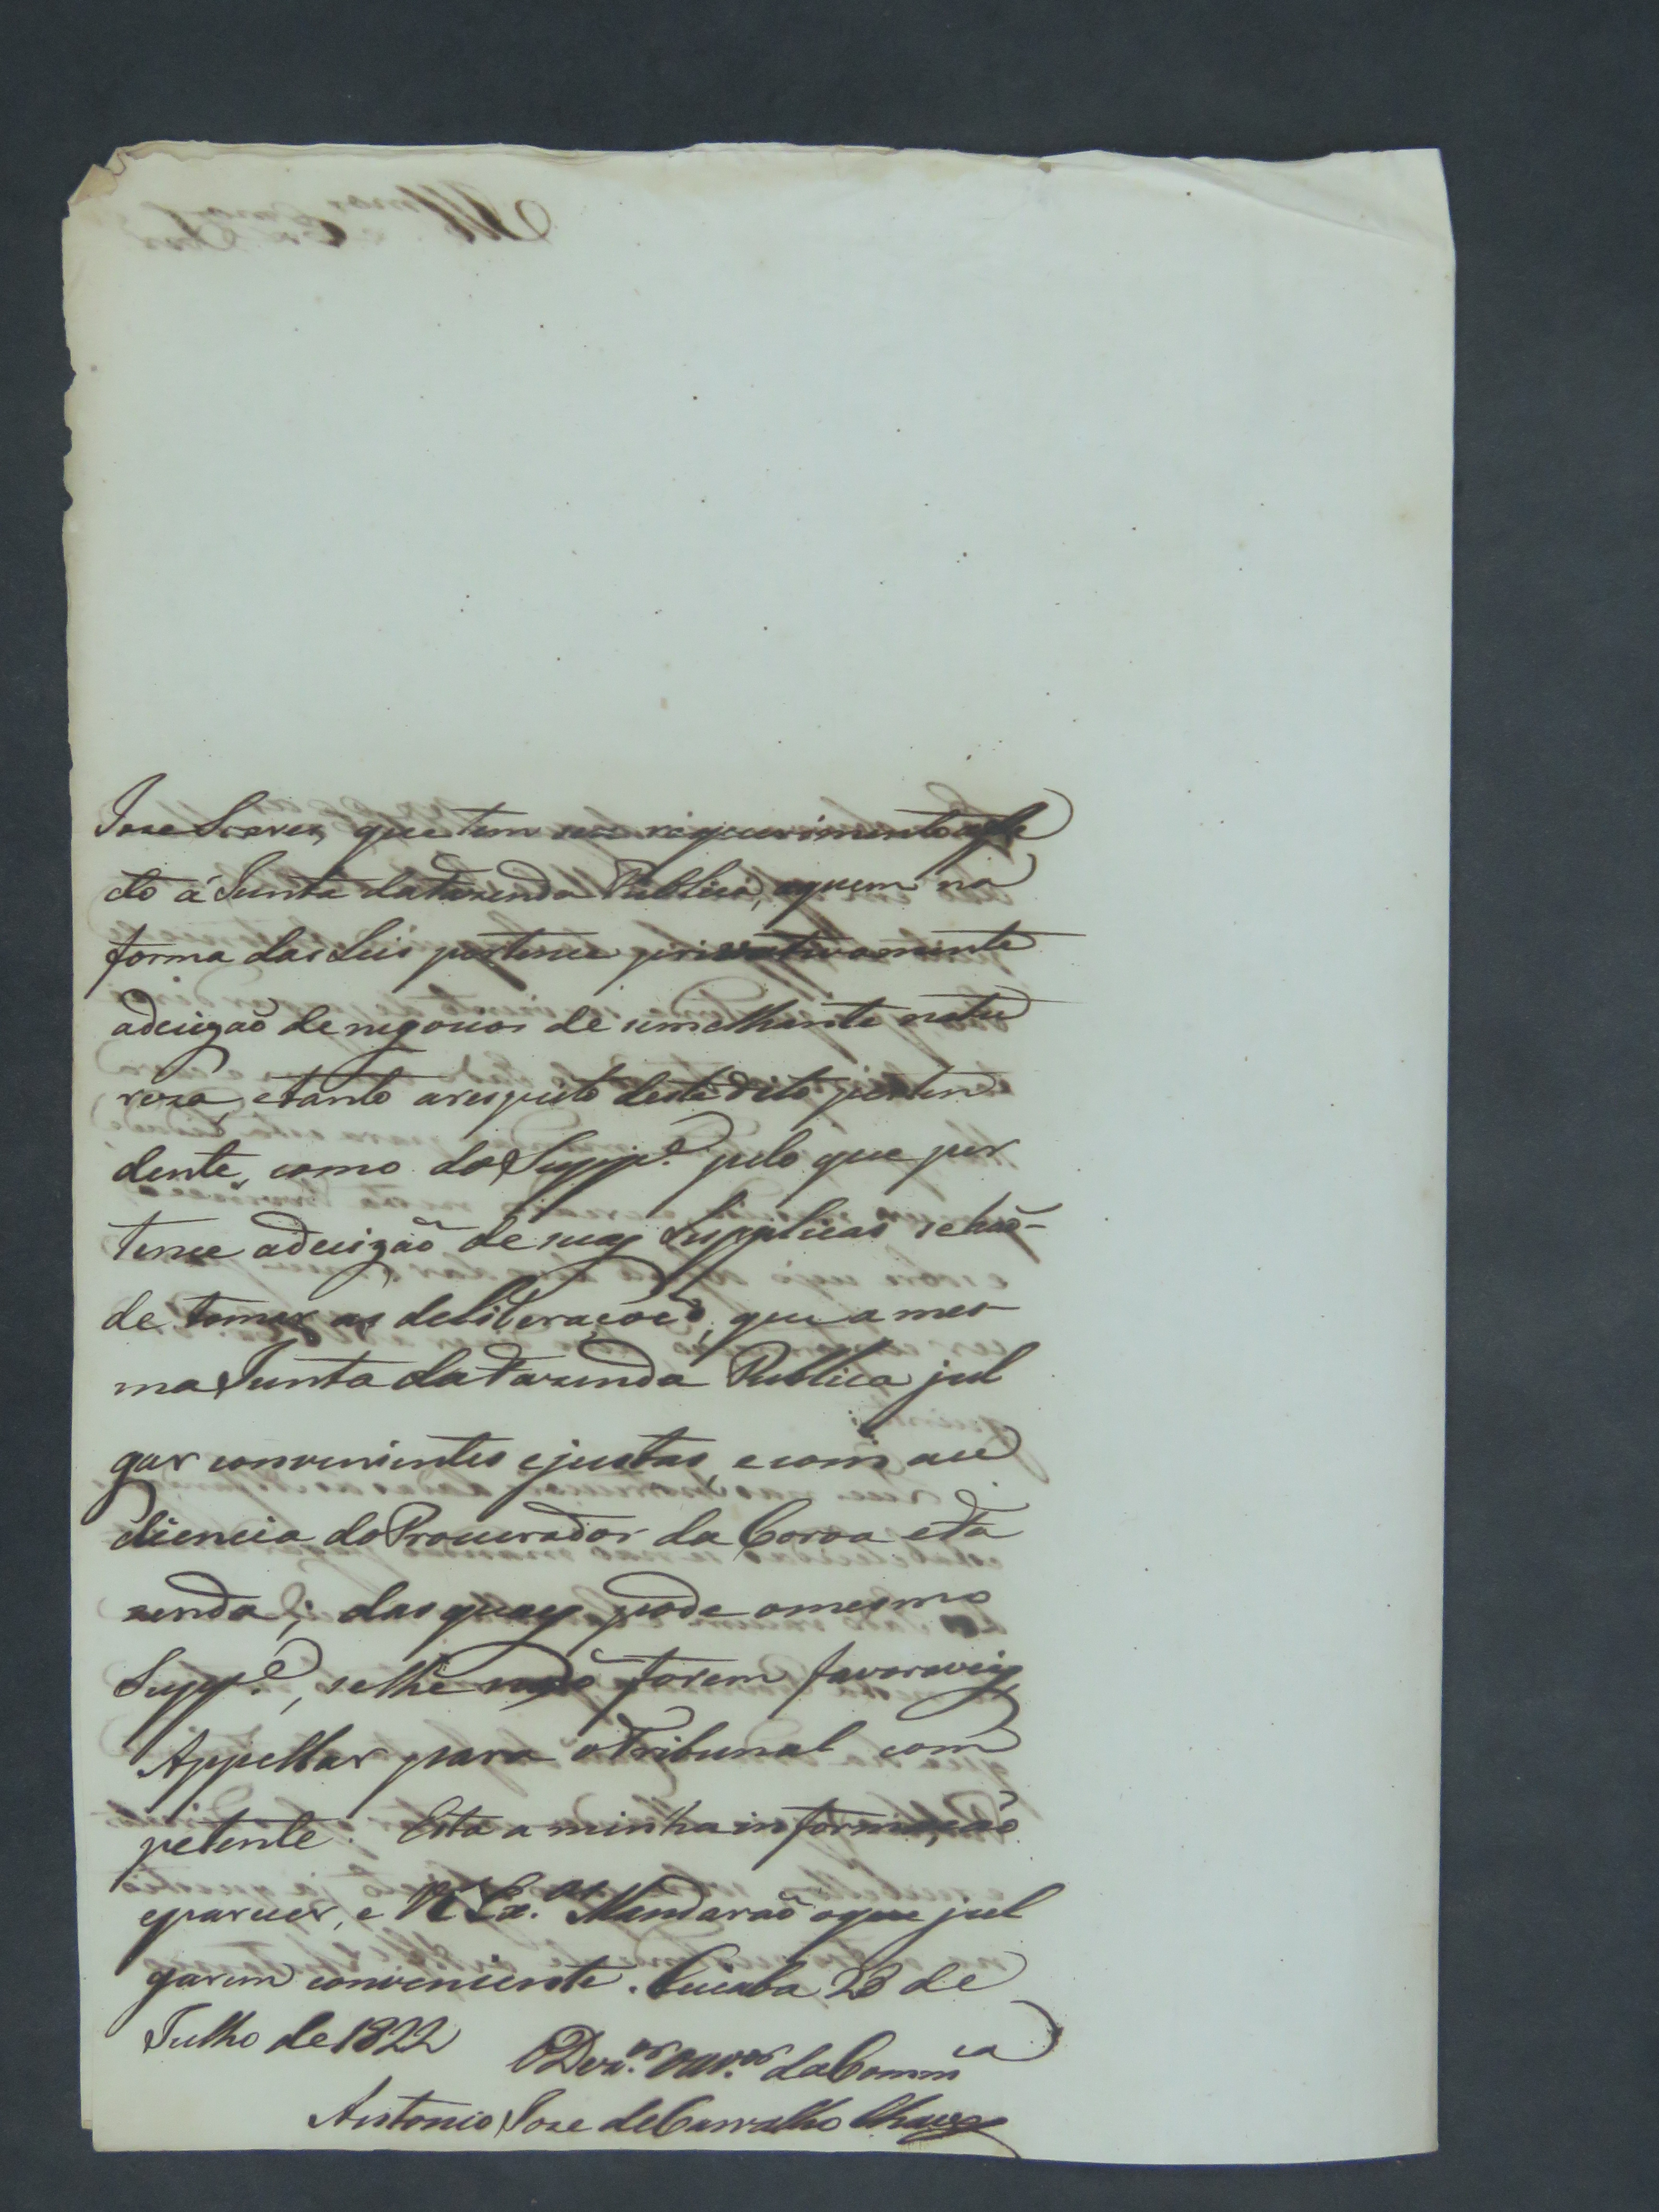 Joze Soares, que tem seu requerimento affe
cto á Junta da Fazenda Publica, aquem na
forma das Leis pertence privativamente
adecizaõ de negocios de semelhante natu
reza, etanto arespeito deste dito perten
dente, como do Supp.e pelo que per
tence adecizaõ de suas Supplicas se haõ-
de tomar as deliberaçoeñs, que a mes-
ma Junta da Fazenda Publica jul
gar convenientes ejustas, ecom au
diencia do Procurador da Coroa eFa
zenda; das quaes pode omesmo
Supp.e, selhe naõ forem favoraveis
Appellar para oTribunal com
petente. Esta a minha informaçaõ
eparecer, e V.as Ex.as Mandaraõ oque jul
garem conveniente. Cuiaba 23 de
Julho de 1822
O Dez.or Ouv.or da Comm.ca
Antonio Joze de Carvalho Chaves